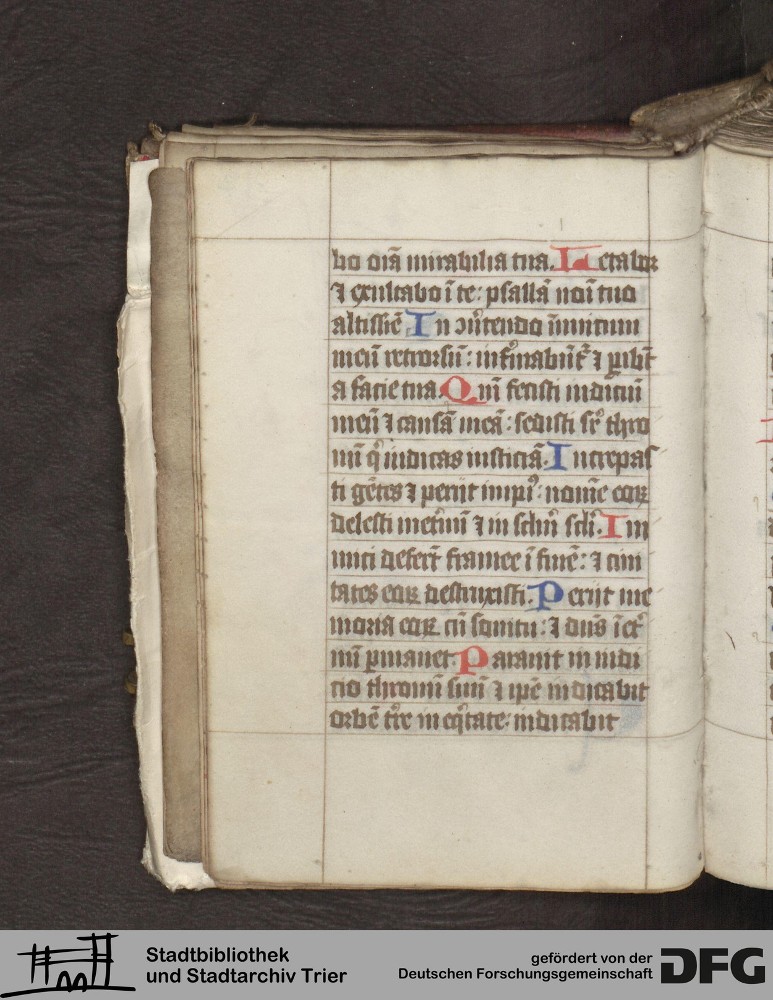 bo oīa mirabilia tua. Letabor
⁊ exultabo ī te: psallā noī tuo
altissīe In ꝯuͤtendo inimicum
meū retrorsū: infirmabūt᷑ ⁊ ꝑibūt
a facie tua. Qm̄ fecisti iudiciū
meū ⁊ causā meā: sedisti sr̄ thro
nū q̇ iudicas iusticiā. Increpas
ti gētes ⁊ periit impiꝰ: nomīe eoꝝ
delesti īneternū ⁊ in sclm̄ scli. Ini
mici defecer̄t framee ī finē: ⁊ ciui
tates eoꝝ destruxisti. Periit me
moria eoꝝ cū sonitu: ⁊ dn̄s ī et᷑
nū ꝑmanet. Parauit in iudi
cio thronū suū ⁊ ip̄e iudicabit
orbē tr̄e in eq̇tate: iudicabit
Stadtbibliothek
und Stadtarchiv Trier
gefördert von der
Deutschen Forschungsgemeinschaft
DFG